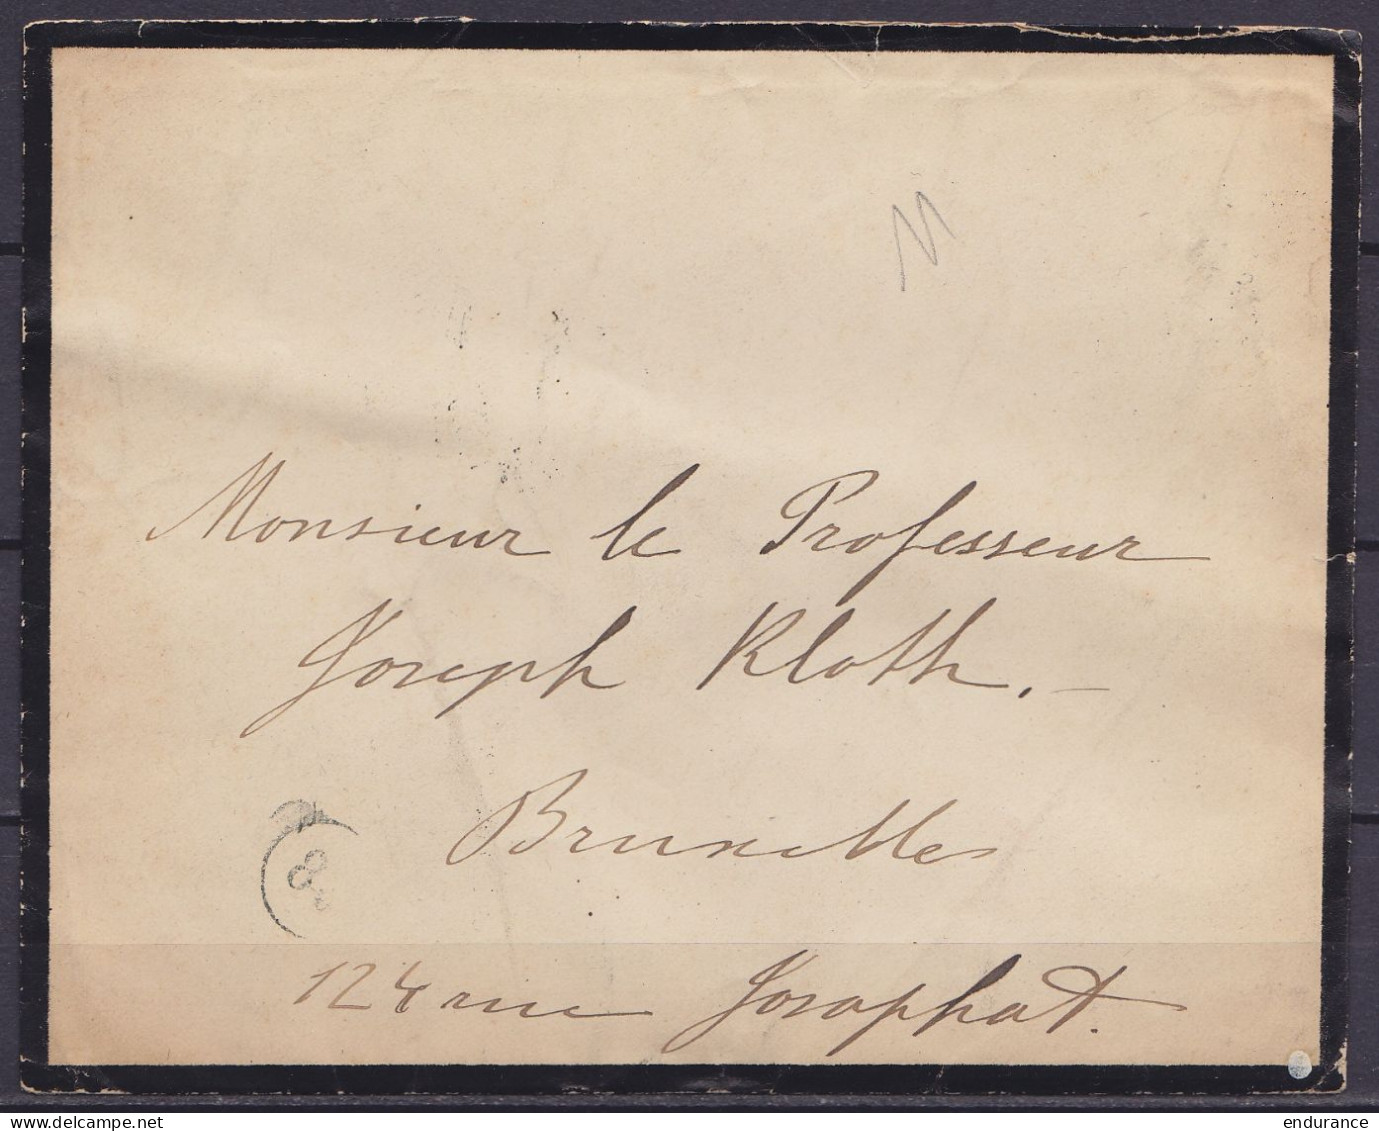 M
Monsieur le Professeur
Joseph Kloth. —
Bruxelles
124 rue Josaphat.
endurance